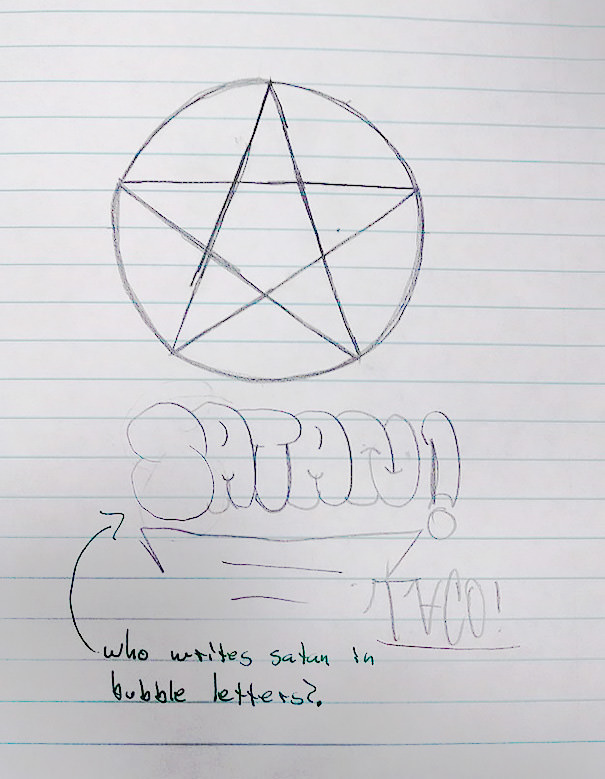 SATAN!
TACO!
who writes satan in
bubble letters?.